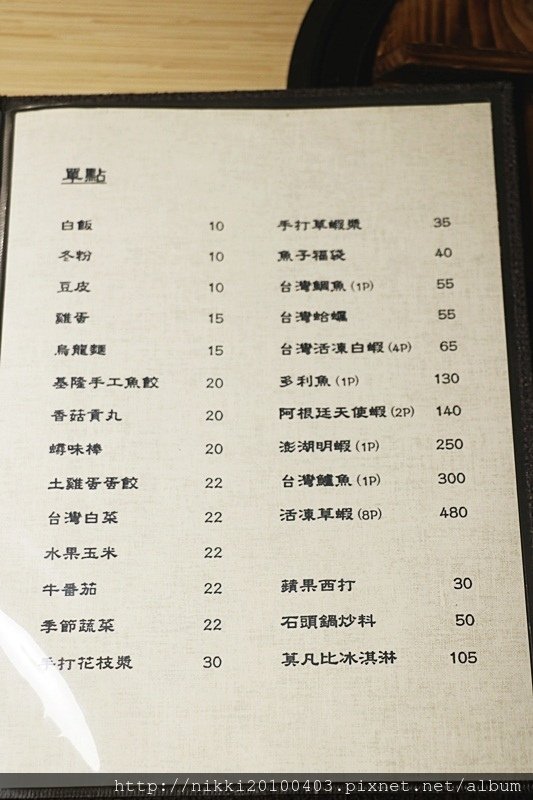 單點
白飯 10
冬粉 10
豆皮 10
雞蛋 15
烏龍麵 15
基隆手工魚餃 20
香菇貢丸 20
蟳味棒 20
土雞蛋蛋餃 22
台灣白菜 22
水果玉米 22
牛番茄 22
季節蔬菜 22
手打花枝漿 30
手打草蝦漿 35
魚子福袋 40
台灣鯛魚(1P) 55
台灣蛤蠣 55
台灣活凍白蝦(4P) 65
多利魚(1P) 130
阿根廷天使蝦(2P) 140
澎湖明蝦(1P) 250
台灣鱸魚(1P) 300
活凍草蝦(8P) 480
蘋果西打 30
石頭鍋炒料 50
莫凡比冰淇淋 105
http://nikki20100403.pixnet.net/album